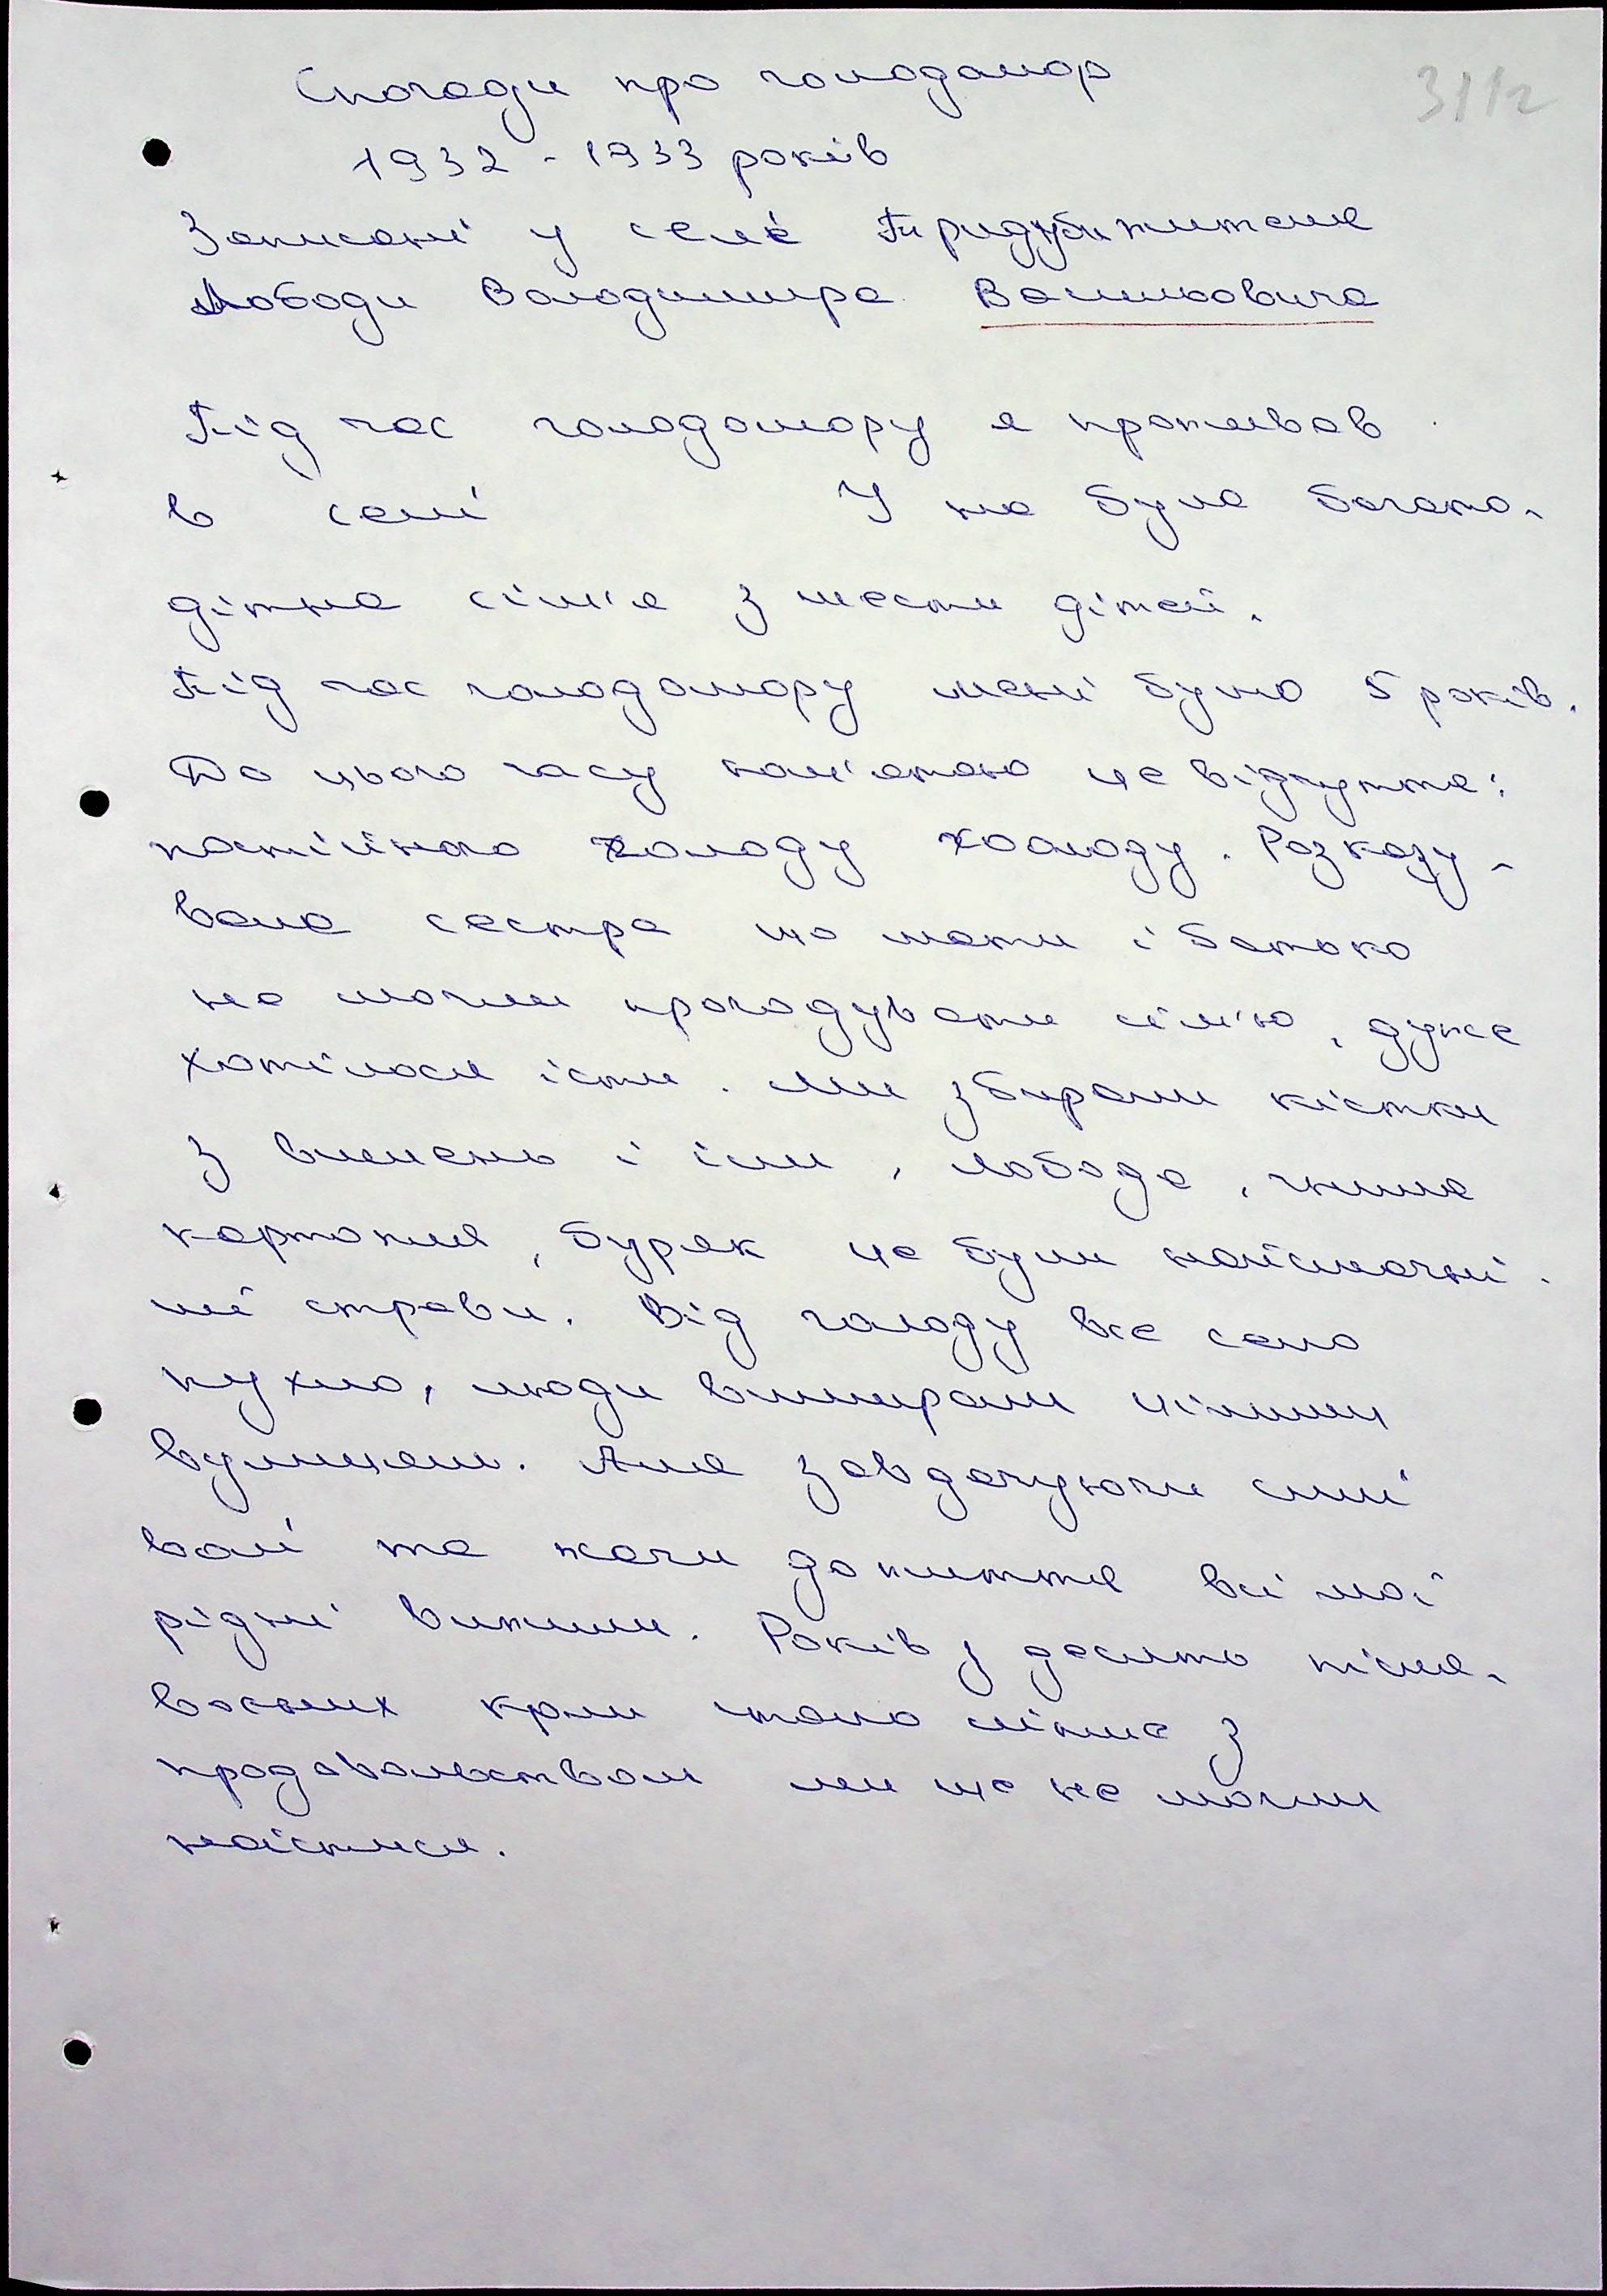 Спогади про голодомор
31 12
1932 - 1933 років
Записані у селі Придубижителя
Лободи Володимира Васильовича
Під час голодомору я проживав
в селі У на була багато-
дітна сім'я з шести дітей.
Під час голодомору мені було 5 років.
До цього часу пам'ятаю це відчуття:
постійного холоду хоолоду. Розказу-
вала сестра що мати і батько
не могли прогодувати сім'ю, дуже
хотілося їсти. Ми збирали кістки
з вишень і їли, лобода, гнила
картопля, буряк це були найсмачні-
ші страви. Від голоду все село
пухло, люди вимирали цілими
вулицями. Але завдячуючи силі
волі та жаги до життя всі мої
рідні вижили. Років з десять після-
воєних коли стало ліпше з
продовольством ми ще не могли
наїстися.